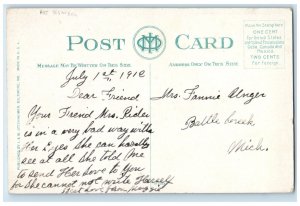 POST CARD
MESSAGE MAY BE WRITTEN ON THIS SIDE
ADDRESS ONLY ON THIS SIDE
Place the Stamp Here
ONE CENT
For United States
and Island Possessions
Cuba, Canada and
Mexico
TWO CENTS
For Foreign
July 1st, 1910
Dear Friend
Your Friend Mrs. Rider
is in a very bad way with
her Eyes she can hardly
see at all she told me
to send Her love to you
for she cannot not write Herself
Best love from Maggie
Mrs. Fannie Unger
Battle Creek
Mich.